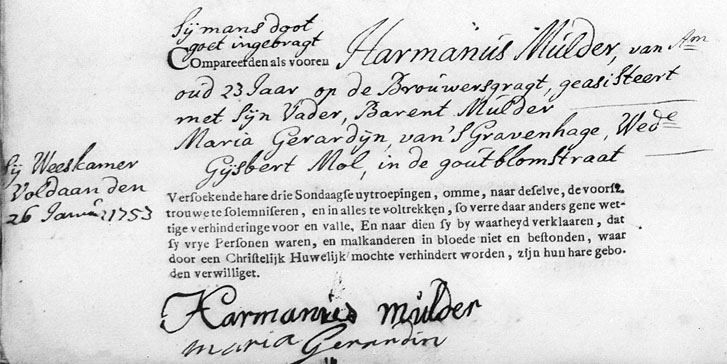 Sij mans doot
goet ingebragt
Compareerden als vooren Harmanus Mulder, van Am
oud 23 Jaar op de Brouwersgragt, geasisteert
met sijn Vader, Barent Mulder
Maria Gerardijn, van 's Gravenhage, Wede
Gijsbert Mol, in de goutblomstraat
Sij Weeskamer
Voldaan den
26 Januari 1753
Versoekende hare drie Sondaagse uytroepingen, omme, naar deselve, de voorsz.
trouwe te solemniseren, en in alles te voltrekken, so verre daar anders gene wet-
tige verhinderinge voor en valle. En naar dien sy by waarheyd verklaaren, dat
sy vrye Personen waren, en malkanderen in bloede niet en bestonden, waar
door een Christelijk Huwelijk mochte verhindert worden, zijn hun hare gebo-
den verwilliget.
Harmanus mulder
maria Gerardin